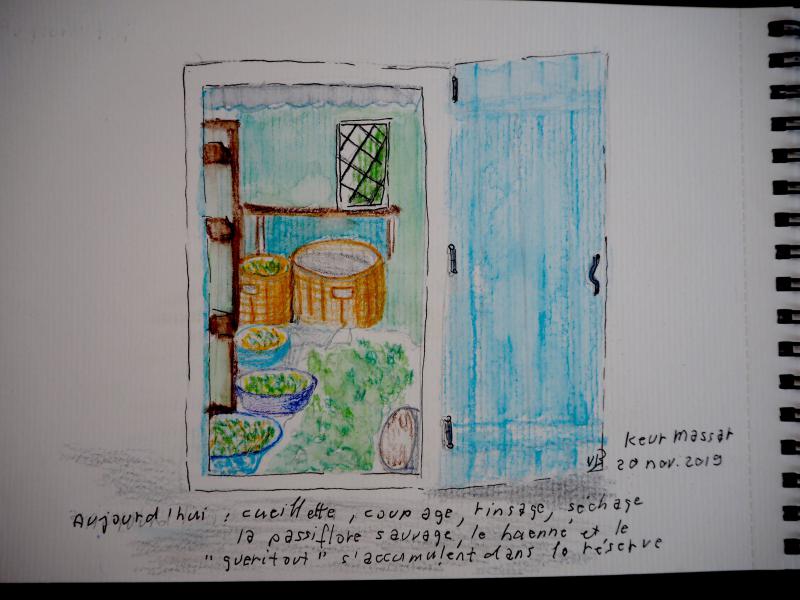 Keur Massar
VB 20 nov. 2019
Aujourd'hui : cueillette, coupage, rinsage, séchage
la passiflore sauvage, le haenné et le
"gueritout" s'accumulent dans la réserve